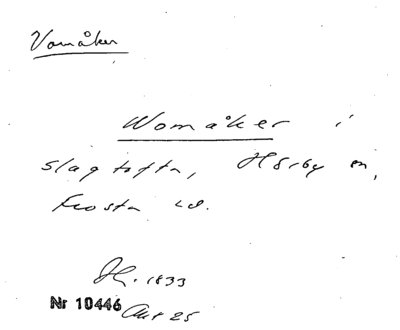 Vomåker
Womåker i
Slagtofta, Hörby sn,
Frosta hd.
1833
Nr 10446 Akt 25